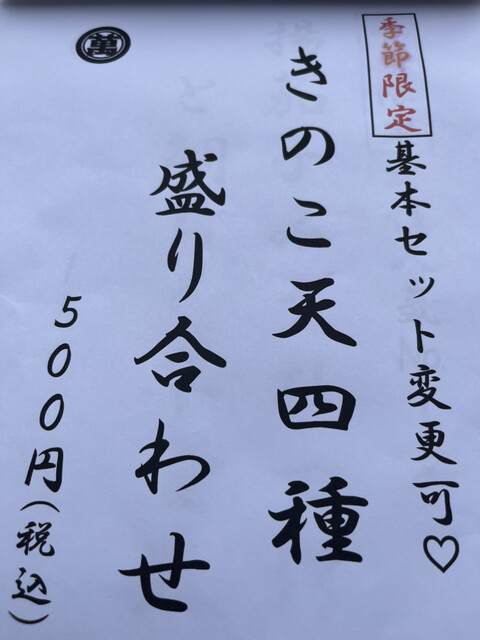 季節限定
基本セット変更可♡
きのこ天四種
盛り合わせ
500円(税込)
萬